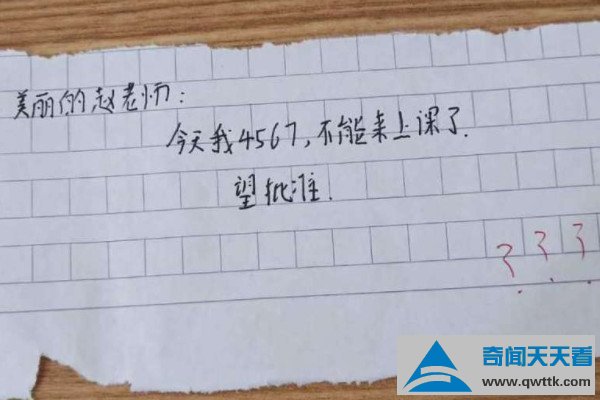 美丽的赵老师：
今天我4567，不能来上课了.
望批准.
???
奇闻天天看
www.qwttk.com